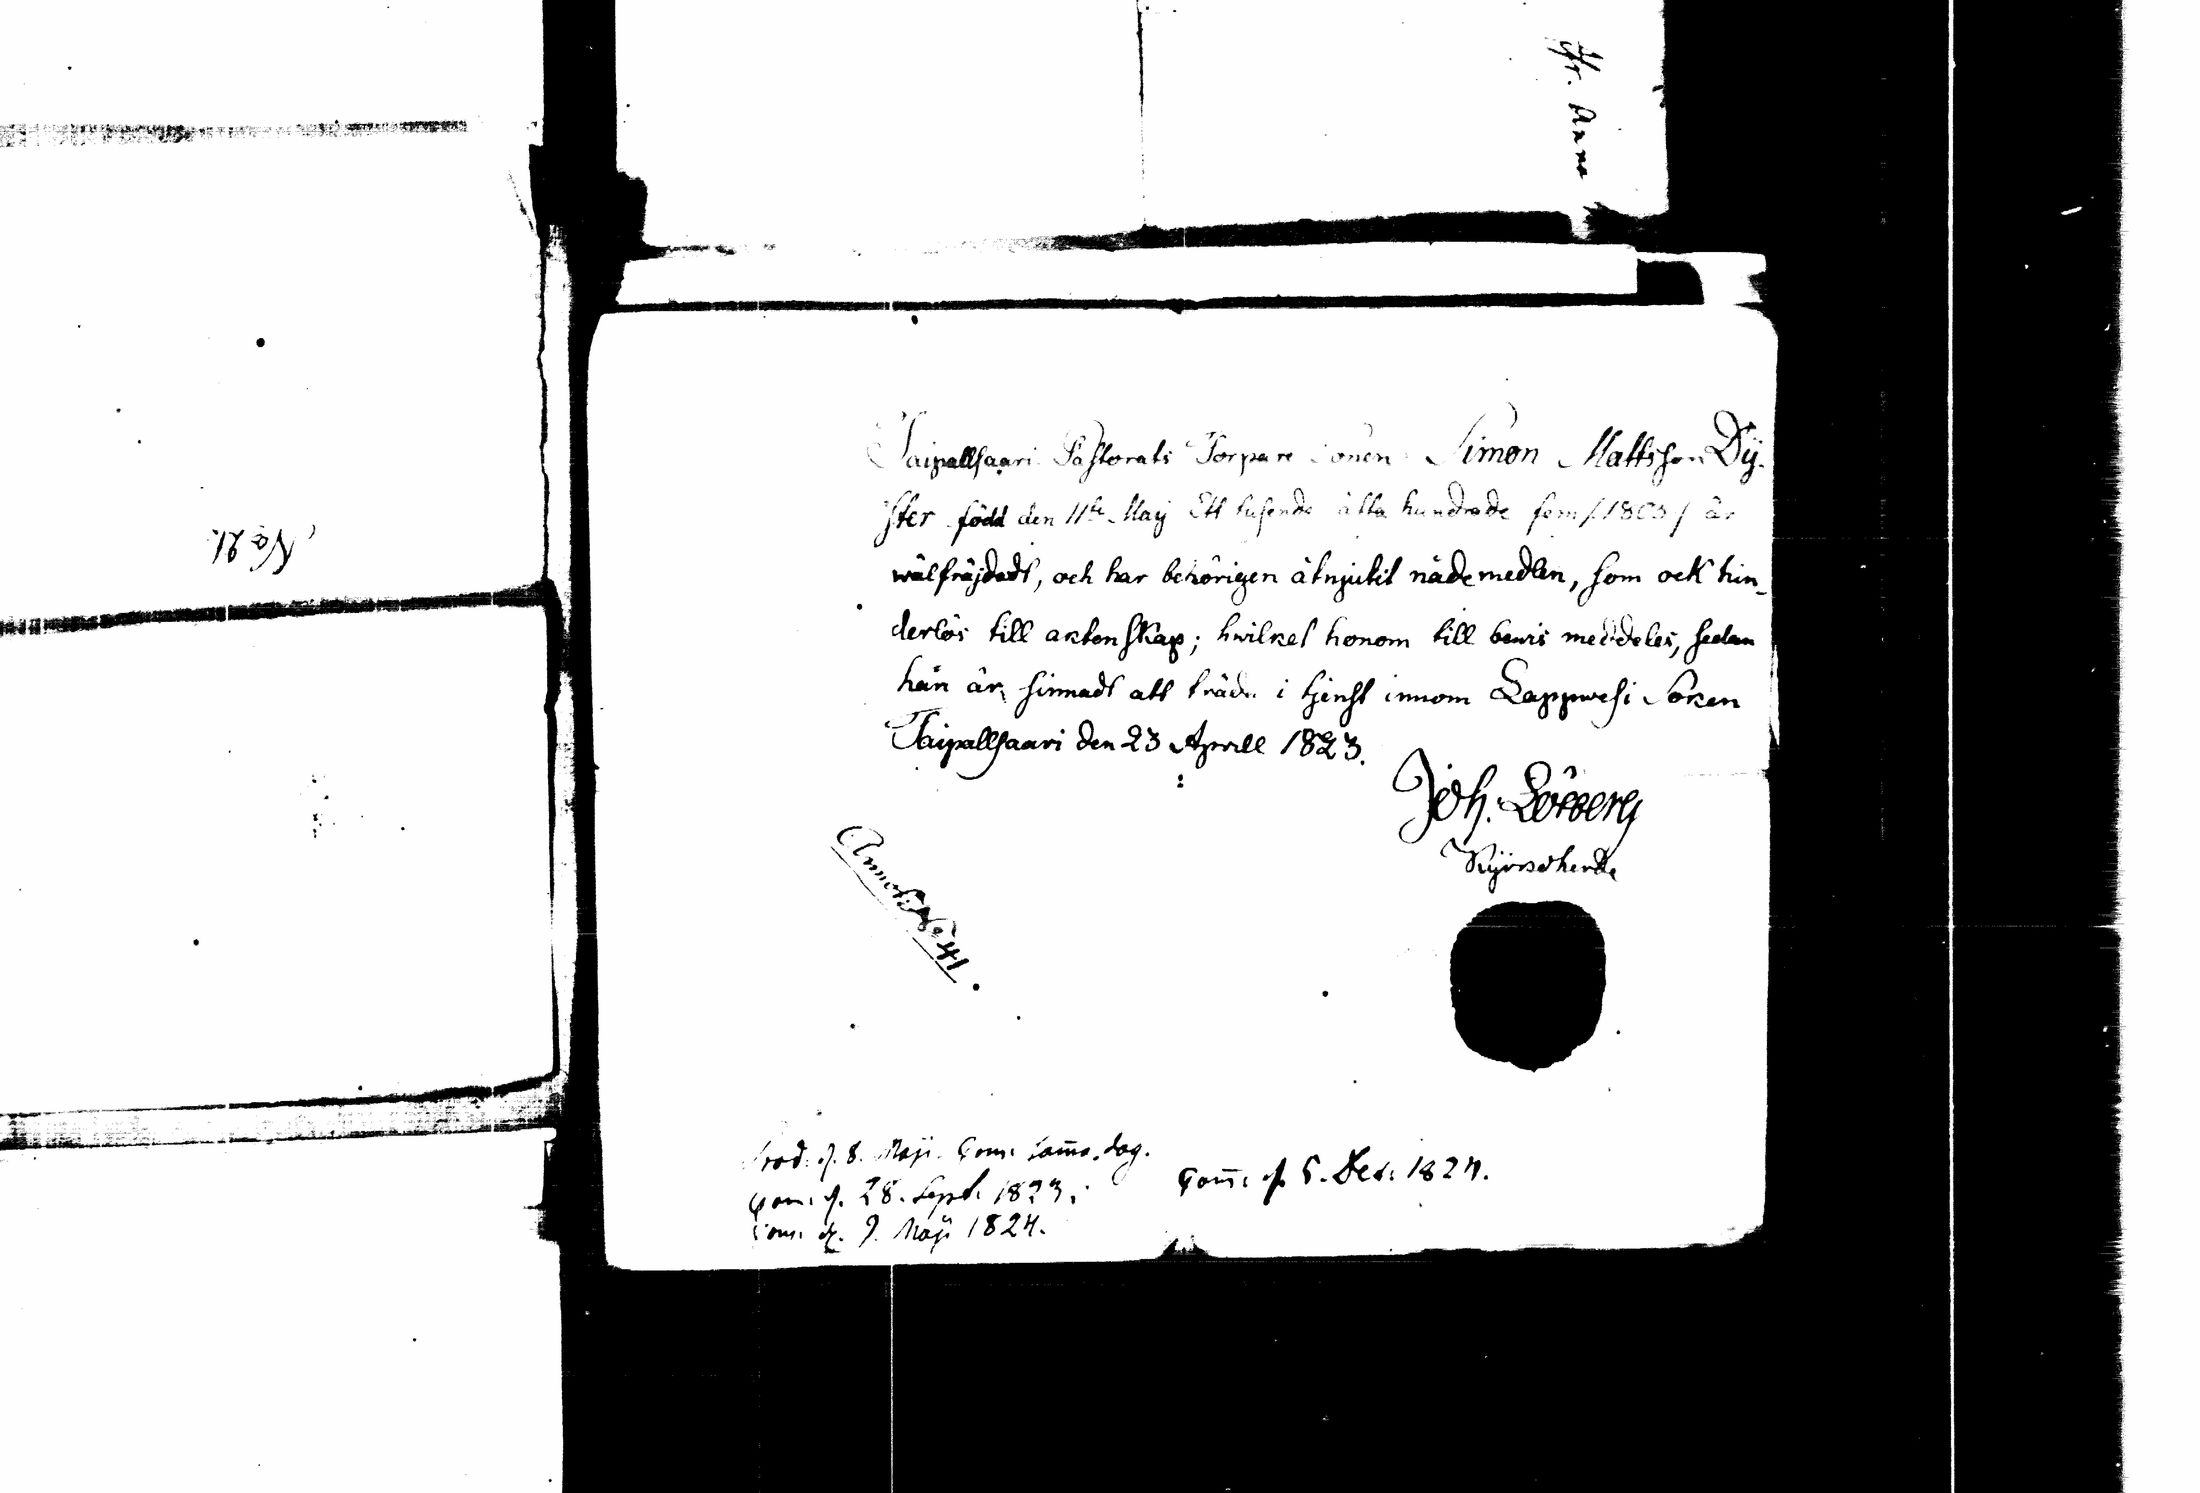 Hr. Anna
No 21.
Taipallsaari Pastorats Torpare sonen Simon Mattsson Dÿ-
ster född den 11te Maÿ Ett tusende åtta hundrade fem /:1805/ är
wälfräjdadt, och har behörigen åtnjutit nådemedlen, som ock hin-
derlös till äktenskap; hwilket honom till bewis meddeles, sedan
han är sinnadt att träda i tjenst innom Lappwesi Soken
Taipallsaari den 23 Aprill 1823.
Joh. Löfberg
Kÿrckoherde
Annot. No 41
Prod. d. 8. Maji. Com. samma dag.
Com. d. 28. Sept. 1823.
Com. d. 9. Maji 1824.
Com. d. 5. Dec. 1824.